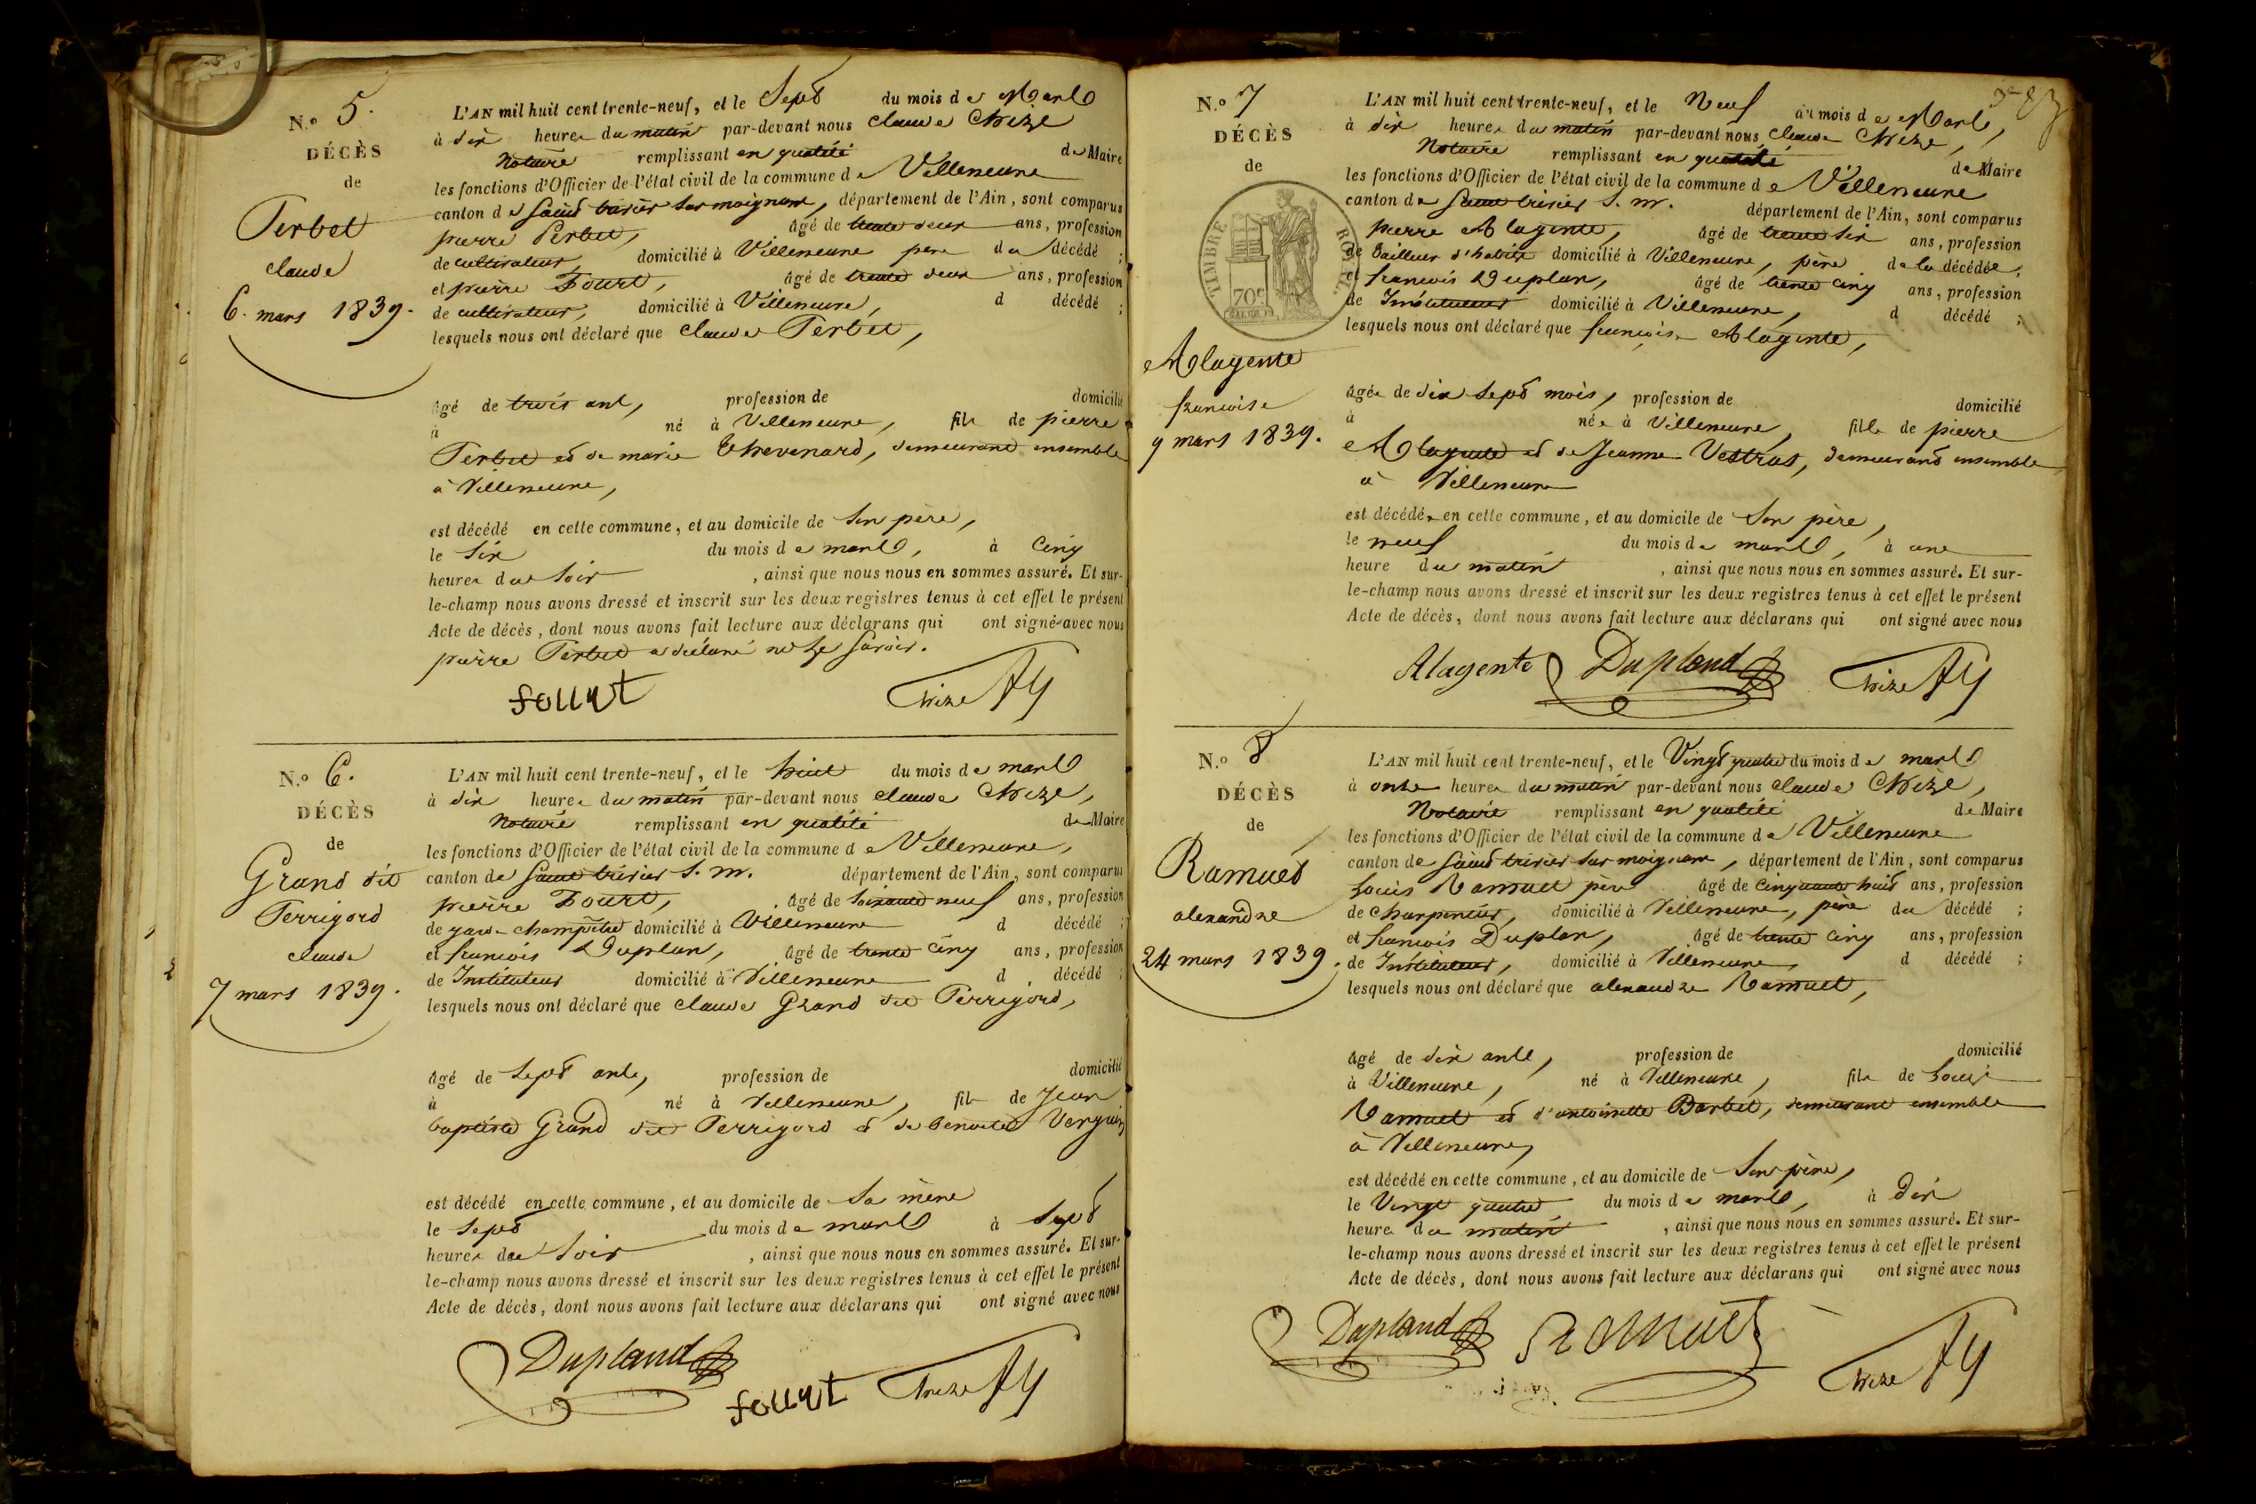 N.o 5.
DÉCÈS
de
Perbet
claude
6. mars 1839.
L'AN mil huit cent trente-neuf, et le Sept du mois de Mars
à dix heures du matin par-devant nous claude Chize
Notaire remplissant en qualité de Maire
les fonctions d'Officier de l'état civil de la commune de Villeneuve
canton de Saint trivier sur moignans, département de l'Ain, sont comparus
pierre Perbet, âgé de trente deux ans, profession
de cultivateur, domicilié à Villeneuve père du décédé ;
et pierre âgé de trente deux ans, profession
de cultivateur, domicilié à Villeneuve, d décédé ;
lesquels nous ont déclaré que claude Perbet,
âgé de trois ans, profession de domicilié
à né à Villeneuve, fils de pierre
Perbet et de marie thevenard, demeurant ensemble
à Villeneuve,
est décédé en cette commune, et au domicile de Son père,
le Six du mois de mars, à Cinq
heures du Soir, ainsi que nous nous en sommes assuré. Et sur-
le-champ nous avons dressé et inscrit sur les deux registres tenus à cet effet le présent
Acte de décès, dont nous avons fait lecture aux déclarans qui ont signé avec nous
pierre Perbet a déclaré ne le Savoir.
Chize
N.o 6.
DÉCÈS
de
Grand dit
Perrigord
claude
7 mars 1839.
L'AN mil huit cent trente-neuf, et le huit du mois de mars
à dix heures du matin par-devant nous claude Chize,
Notaire remplissant en qualité de Maire
les fonctions d'Officier de l'état civil de la commune de Villeneuve,
canton de Saint trivier S. M. département de l'Ain, sont comparus
pierre âgé de Soixante neuf ans, profession
de garde champêtre domicilié à Villeneuve d décédé ;
et francois Duplan, âgé de trente cinq ans, profession
de Instituteur domicilié à Villeneuve d décédé ;
lesquels nous ont déclaré que claude Grand dit Perrigord,
âgé de Sept ans, profession de domicilié
à né à Villeneuve, fils de Jean
baptiste Grand dit Perrigord et de benoite
est décédé en cette commune, et au domicile de Sa mère
le Sept du mois de mars à Sept
heures du Soir, ainsi que nous nous en sommes assuré. Et sur-
le-champ nous avons dressé et inscrit sur les deux registres tenus à cet effet le présent
Acte de décès, dont nous avons fait lecture aux déclarans qui ont signé avec nous
Dupland
Chize
N.o 7
DÉCÈS
de
TIMBRE ROYAL
70c
Alagente
francoise
9 mars 1839.
L'AN mil huit cent trente-neuf, et le Neuf du mois de Mars,
à dix heures du matin par-devant nous, claude Chize,
Notaire remplissant en qualité de Maire
les fonctions d'Officier de l'état civil de la commune de Villeneuve
canton de Saint trivier S. M. département de l'Ain, sont comparus
pierre Alagente, âgé de trente Six ans, profession
de tailleur d'habits domicilié à Villeneuve, père de la décédée ;
et francois Duplan, âgé de trente cinq ans, profession
de Instituteur domicilié à Villeneuve, d décédé ;
lesquels nous ont déclaré que françoise Alagente,
âgée de dix Sept mois, profession de domicilié
à née à Villeneuve, fille de pierre
Alagente et de Jeanne Vestras, demeurant ensemble
à Villeneuve
est décédée en cette commune, et au domicile de Son père,
le neuf du mois de mars, à une
heure du matin, ainsi que nous nous en sommes assuré. Et sur-
le-champ nous avons dressé et inscrit sur les deux registres tenus à cet effet le présent
Acte de décès, dont nous avons fait lecture aux déclarans qui ont signé avec nous
Alagente Dupland Chize
N.o 8
DÉCÈS
de
Ramuet
alexandre
24 mars 1839.
L'AN mil huit cent trente-neuf, et le Vingt quatre du mois de mars
à onze heures du matin par-devant nous claude Chize,
Notaire remplissant en qualité de Maire
les fonctions d'Officier de l'état civil de la commune de Villeneuve
canton de Saint trivier sur moignans, département de l'Ain, sont comparus
Louis Ramuet père âgé de cinquante huit ans, profession
de charpentier, domicilié à Villeneuve, père du décédé ;
et francois Duplan, âgé de trente cinq ans, profession
de Instituteur, domicilié à Villeneuve, d décédé ;
lesquels nous ont déclaré que alexandre Ramuet,
âgé de dix ans, profession de domicilié
à Villeneuve, né à Villeneuve, fils de Louis
Ramuet et d'antoinette Barbet, demeurant ensemble
à Villeneuve,
est décédé en cette commune, et au domicile de Son père,
le Vingt quatre du mois de mars, à Dix
heures du matin, ainsi que nous nous en sommes assuré. Et sur-
le-champ nous avons dressé et inscrit sur les deux registres tenus à cet effet le présent
Acte de décès, dont nous avons fait lecture aux déclarans qui ont signé avec nous
Dupland Ramuet Chize